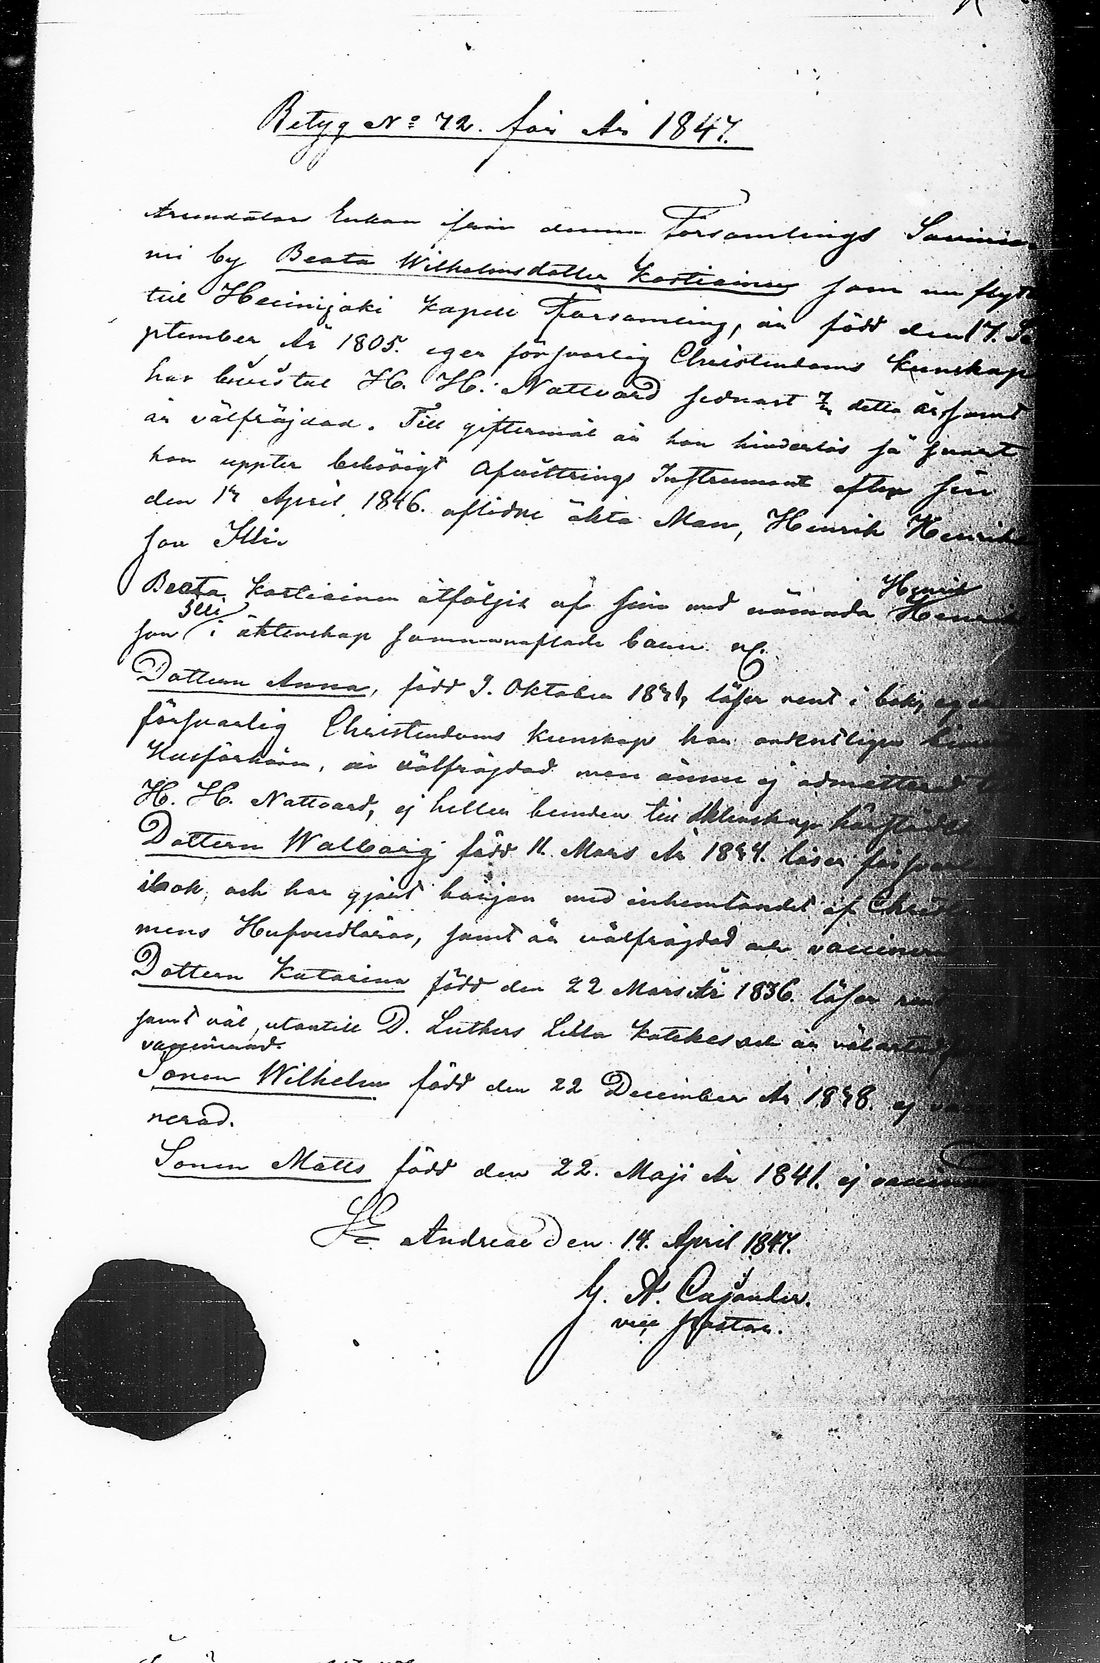 Betyg No 72. för År 1847.
Enkan från denna Församlings
mi by Beata Wilhelmsdotter Kostiainen som nu flytt
till Heinijoki Kapell Församling, är född den 17. Se
ptember År 1805. eger försvarlig Christendoms Kunskap
har bevistat H. H. Nattvard sednast detta år samt
är välfräjdad. Till giftermål är hon hinderlös så snart
hon uppter behörigt Afvittrings Instrument efter sin
den 17 April 1846. aflidne äkta Man, Henrik Henriks
son Illi.
Beata Kostiainen åtföljes af sina med nämnda Henrik
son Illi i äktenskap sammanaflade barn
Dottern Anna, född 9. Oktober läser rent i bok, eger
försvarlig Christendoms Kunskap har ordentligen
Husförhören, är välfräjdad men ännu ej admitterad
H. H. Nattvard, ej heller bunden till Äktenskap
Dottern Walborg född 11. Mars År läser försvarl
i bok, och har gjort början med inhemtandet af Christ
mens Hufvudläror, samt är välfräjdad och
Dottern Katarina född den 22 Mars År 1836. läser rent
samt väl utantill D. Luthers Lilla Katekes och är
vaccinerad.
Sonen Wilhelm född den 22 December År 1838. ej vacci
nerad.
Sonen Matts född den 22. Maji År 1841. ej
St Andreae den 14. April 1847.
G. A. Cajander.
vice Pastor.